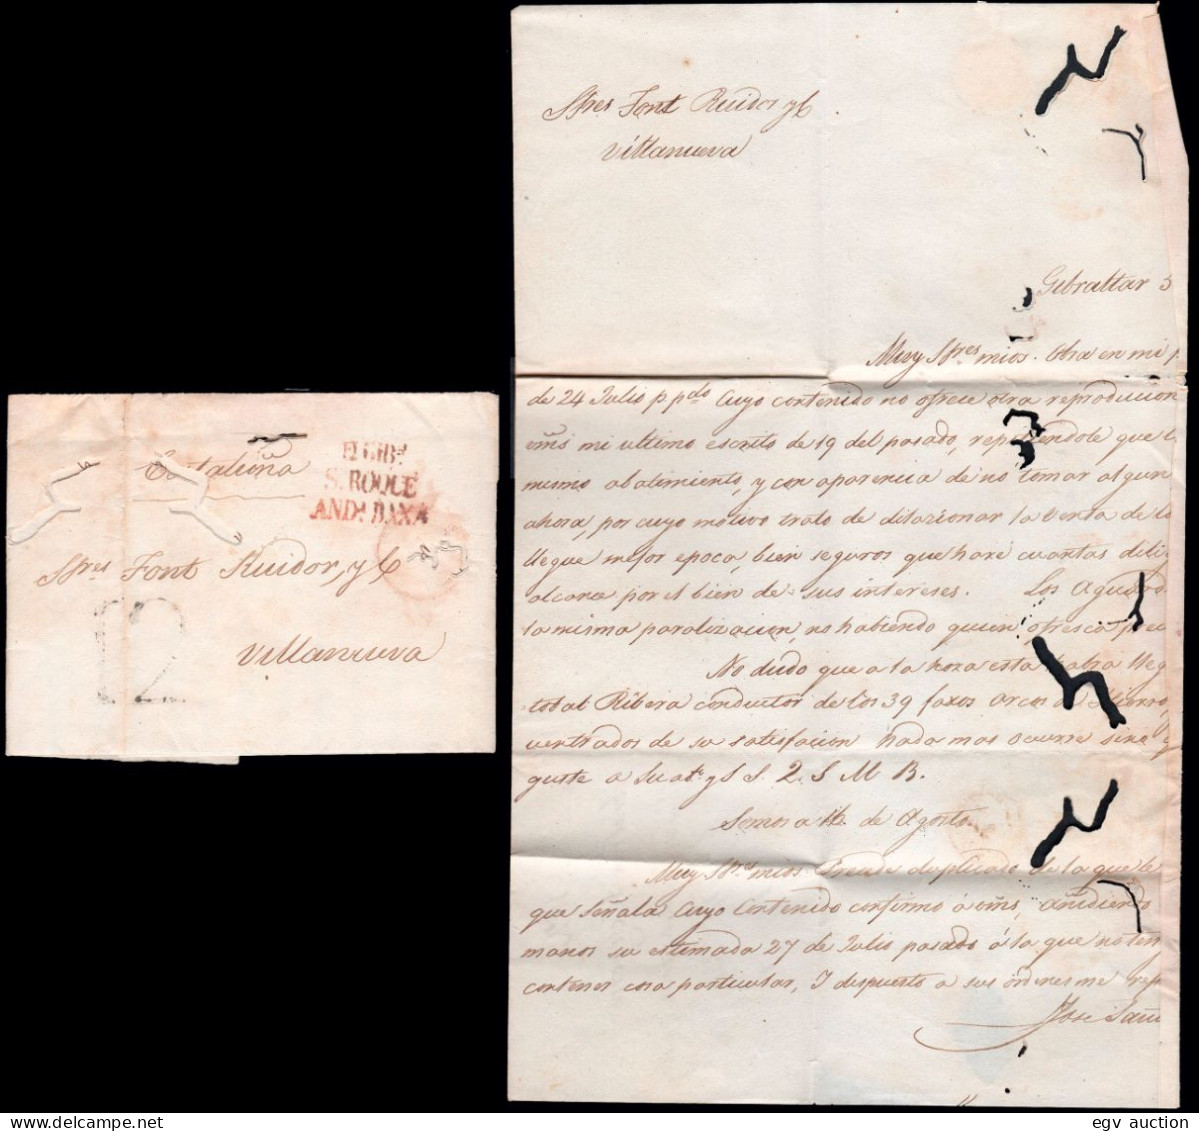 Cataluña
E. GIBR
S. ROQUE
ANDA BAXA
Sres Font Ruidor, y C
12
Villanueva
Sres Font Ruidor y C
Villanueva
Gibraltar 3
Muy Sres mios. Obra en mi p
de 24 Julio p pdo cuyo contenido no ofrece otra reproduccion
mi ultimo escrito de 19 del pasado, repitiendole que l
mismo abatimiento, y con aparencia de no tomar algun
ahora, por cuyo motivo trato de dilacionar la venta de lo
llegue mejor epoca, bien seguros que haré cuantas dili
alcance por el bien de sus intereses. Los Aguard
la misma paralizacion, no habiendo quien ofresca
No dudo que a la hora esta habra lleg
tobal Ribera conductor de los 39 faxos arcos de Hierro,
cuentrados de su satisfacion nada mas ocurre sino q
guste a su at. y S S. Q. S M B.
Somos a 16 de Agosto
Muy Sres mios. duplicado de la que le
que señala cuyo contenido confirmo á , añidiendo
manos su estimada 27 de Julio pasado á la que no ten
contener cosa particular, I dispuesto a sus ordenes me rep
Jose
egv auction